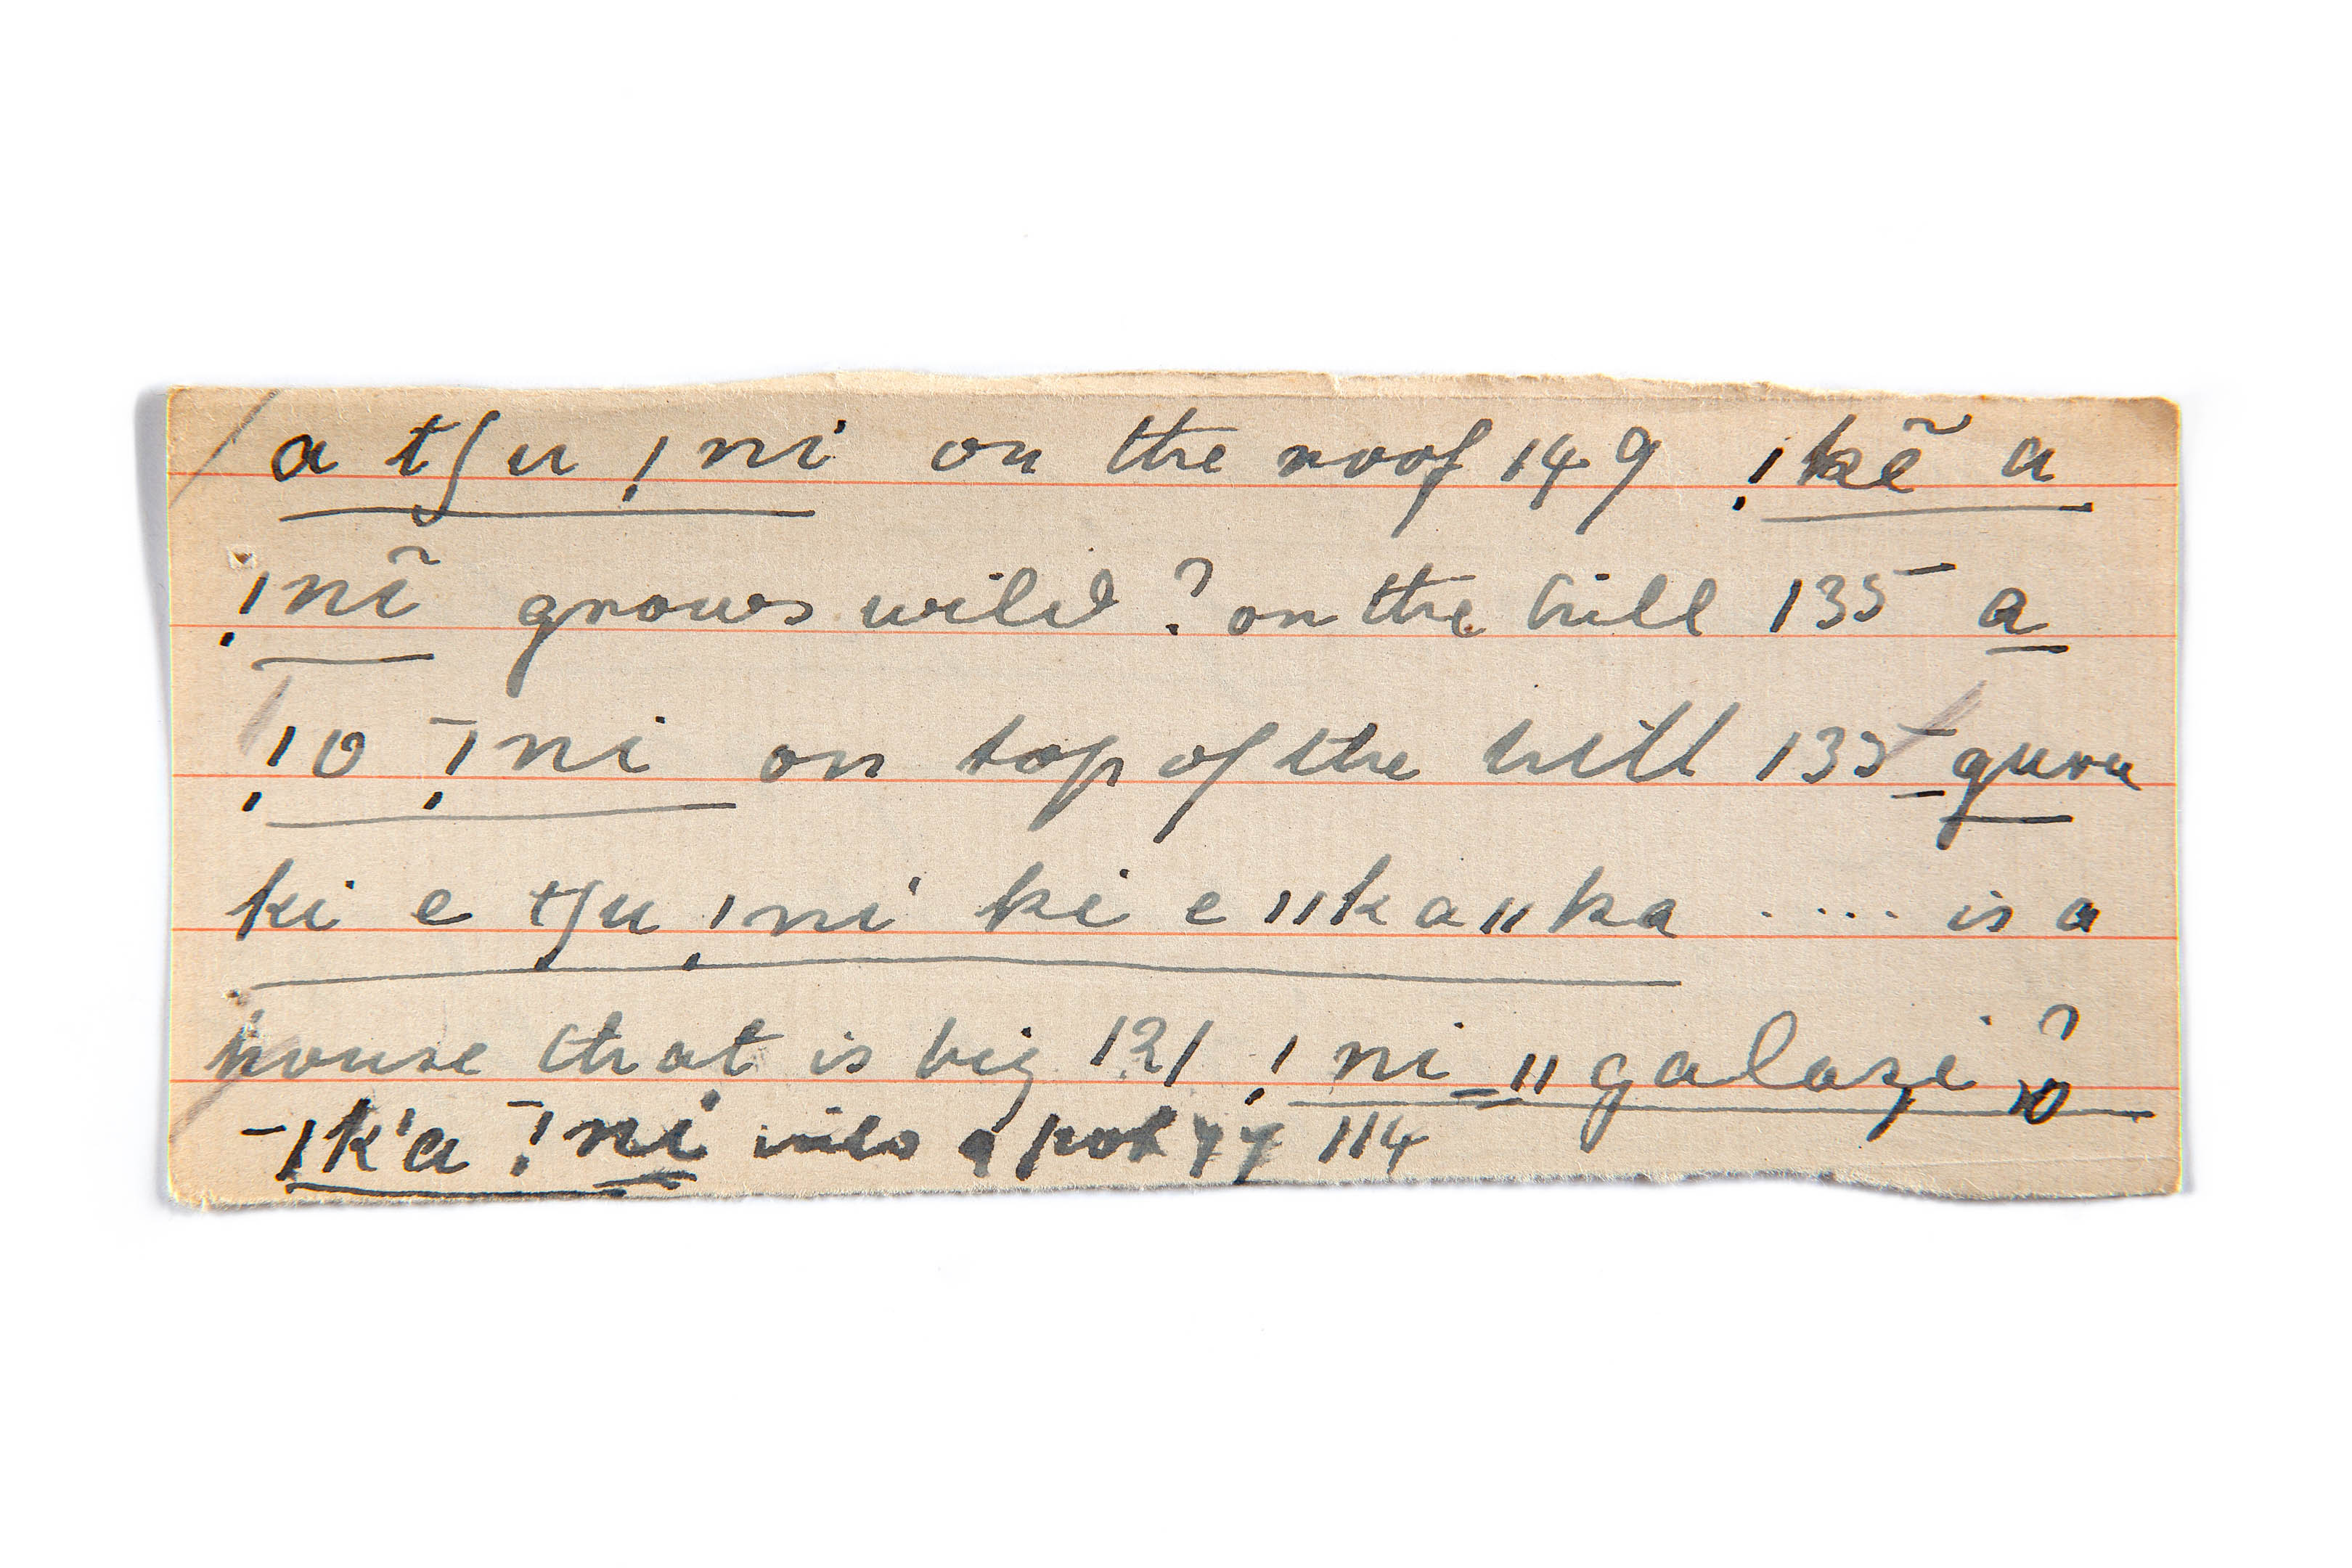 a tʃu !ni on the roof 149 !kẽ a
!nĩ grows wild? on the hill 135 a
!o !ni on top of the hill 135 guru
ki e tʃu !ni ki e ǁkaǁka .... is a
house that is big 121 !ni ǁgalazi ?
!k'a !ni into a pot 114